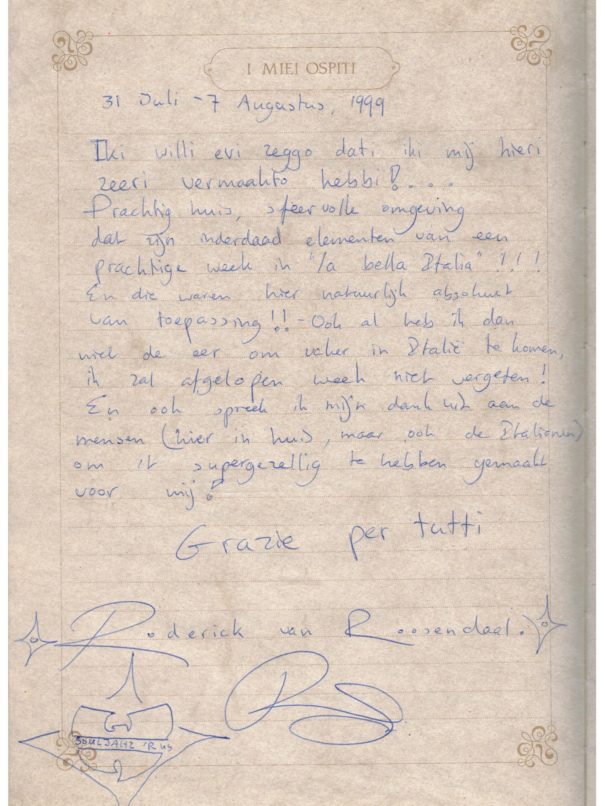 I MIEI OSPITI
31 Juli - 7 Augustus, 1999
Iki willi evi zeggo dati iki mij hieri
zeeri vermaakto hebbi!...
Prachtig huis, sfeervolle omgeving
dat zijn inderdaad elementen van een
prachtige week in "la bella Italia"!!!
En die waren hier natuurlijk absoluut
van toepassing!! - Ook al heb ik dan
niet de eer om vaker in Italië te komen,
ik zal afgelopen week niet vergeten!
En ook spreek ik mijn dank uit aan de
mensen (hier in huis, maar ook de Italianen)
om it supergezellig te hebben gemaakt
voor mij!
Grazie per tutti
Roderick van Roosendaal.
SOULJAHZ 'R US